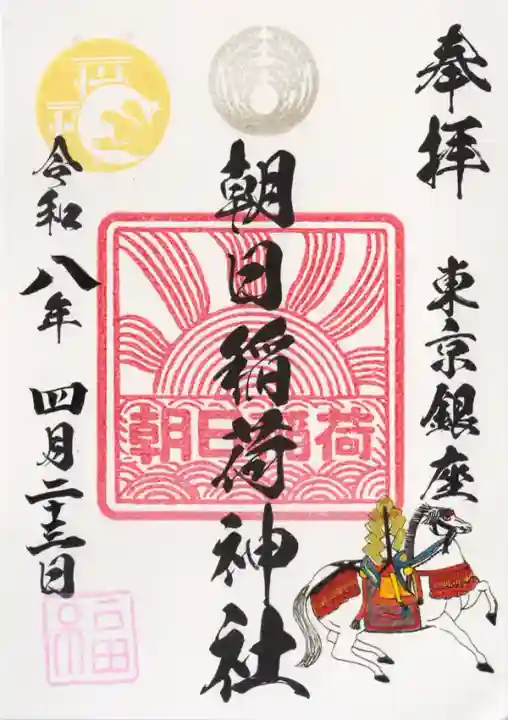 奉拝
東京銀座
朝日稲荷神社
朝日稲荷
令和八年四月二十三日
福